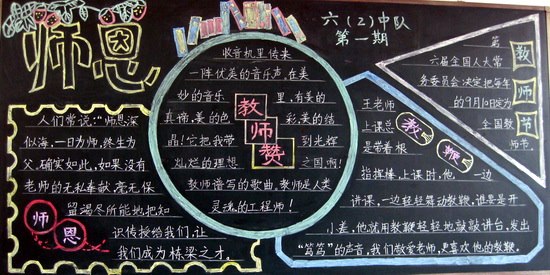 师恩
六(2)中队
第一期
人们常说:“师恩深
似海,一日为师,终生为
父,确实如此,如果没有
老师的无私奉献,毫无保
留竭尽所能地把知
识传授给我们,让
我们成为栋梁之才。
师恩
收音机里传来
一阵优美的音乐声,在美
妙的音乐里,有美的
真谛,美的色彩,美的结
晶!它把我带到光辉
灿烂的理想之国啊!
教师谱写的歌曲,教师是人类
灵魂的工程师!
教师赞
王老师
上课总
是带着根
指挥棒,上课时,他一边
讲课,一边轻轻舞动教鞭,谁要是开
小差,他就用教鞭轻轻地敲敲讲台,发出
“笃笃”的声音,我们敬爱老师,更喜欢他的教鞭。
教鞭
第
六届全国人大常
务委员会决定把每年
的9月10日定为
全国教
师节
教师节